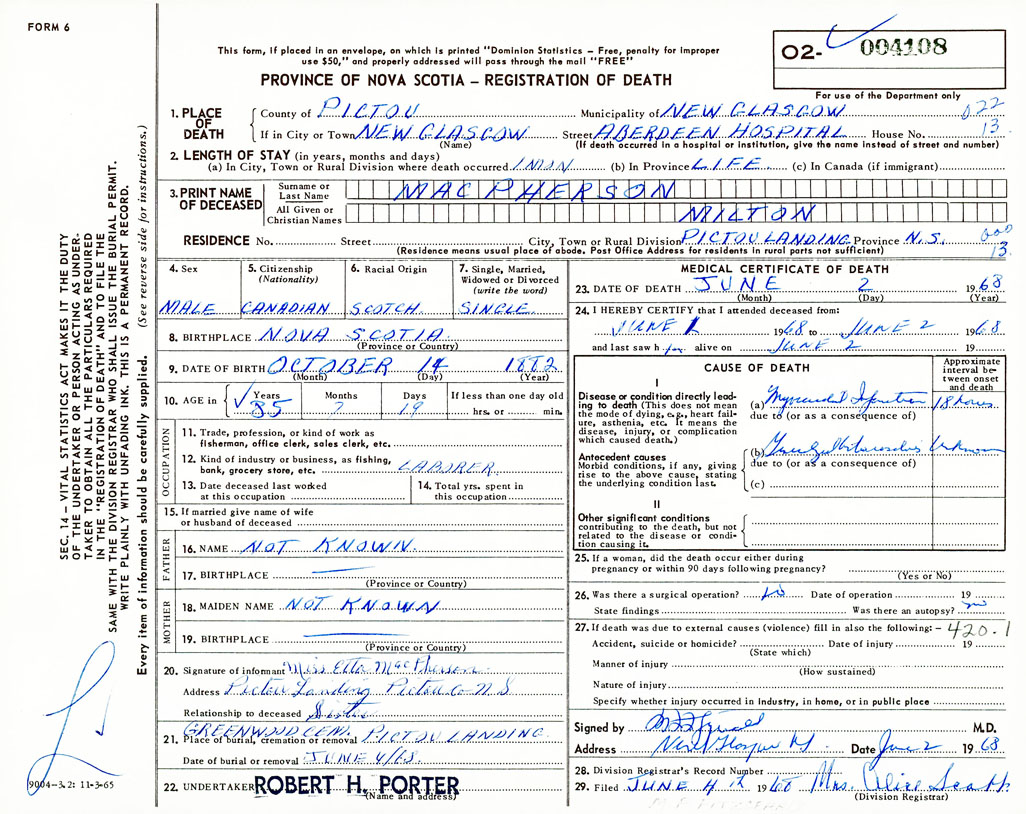 FORM 6
This form, if placed in an envelope, on which is printed "Dominion Statistics – Free, penalty for improper
use $50," and properly addressed will pass through the mail "FREE"
O2- 004108
PROVINCE OF NOVA SCOTIA – REGISTRATION OF DEATH
For use of the Department only
1. PLACE OF DEATH
County of PICTOU Municipality of NEW GLASGOW 022
If in City or Town NEW GLASGOW Street ABERDEEN HOSPITAL House No. 13
(Name) (If death occurred in a hospital or institution, give the name instead of street and number)
2. LENGTH OF STAY (in years, months and days)
(a) In City, Town or Rural Division where death occurred (b) In Province LIFE (c) In Canada (if immigrant)
3. PRINT NAME OF DECEASED
Surname or Last Name MACPHERSON
All Given or Christian Names MILTON
RESIDENCE No. Street City, Town or Rural Division PICTOU LANDING Province N.S. 13
(Residence means usual place of abode. Post Office Address for residents in rural parts not sufficient)
4. Sex MALE
5. Citizenship (Nationality) CANADIAN
6. Racial Origin SCOTCH
7. Single, Married, Widowed or Divorced (write the word) SINGLE
8. BIRTHPLACE NOVA SCOTIA
(Province or Country)
9. DATE OF BIRTH OCTOBER 14 1882
(Month) (Day) (Year)
10. AGE in Years 85 Months 7 Days 19 If less than one day old hrs. or min.
OCCUPATION
11. Trade, profession, or kind of work as
fisherman, office clerk, sales clerk, etc.
12. Kind of industry or business, as fishing,
bank, grocery store, etc. LABORER
13. Date deceased last worked
at this occupation
14. Total yrs. spent in
this occupation
15. If married give name of wife
or husband of deceased
FATHER
16. NAME NOT KNOWN
17. BIRTHPLACE
(Province or Country)
MOTHER
18. MAIDEN NAME NOT KNOWN
19. BIRTHPLACE
(Province or Country)
20. Signature of informant Miss Etta MacPherson
Address Pictou Landing Pictou Co N.S
Relationship to deceased Sister
GREENWOOD CEM.
21. Place of burial, cremation or removal PICTOU LANDING
Date of burial or removal JUNE 4/68
22. UNDERTAKER ROBERT H. PORTER
(Name and address)
MEDICAL CERTIFICATE OF DEATH
23. DATE OF DEATH JUNE 2 1968
(Month) (Day) (Year)
24. I HEREBY CERTIFY that I attended deceased from:
JUNE 1 1968 to JUNE 2 1968
and last saw h im alive on JUNE 2 19
CAUSE OF DEATH
Approximate interval between onset and death
I
Disease or condition directly leading to death (This does not mean
the mode of dying, e.g., heart failure, asthenia, etc. It means the
disease, injury, or complication
which caused death.)
(a) Myocardial Infarction 18 hours
due to (or as a consequence of)
Antecedent causes
Morbid conditions, if any, giving
rise to the above cause, stating
the underlying condition last.
(b) Unknown
due to (or as a consequence of)
(c)
II
Other significant conditions
contributing to the death, but not
related to the disease or condition causing it.
25. If a woman, did the death occur either during
pregnancy or within 90 days following pregnancy?
(Yes or No)
26. Was there a surgical operation? No Date of operation 19
State findings Was there an autopsy? no
27. If death was due to external causes (violence) fill in also the following: – 420.1
Accident, suicide or homicide? Date of injury 19
(State which)
Manner of injury
(How sustained)
Nature of injury
Specify whether injury occurred in industry, in home, or in public place
Signed by M.D.
Address New Glasgow Date June 2 1968
28. Division Registrar's Record Number
29. Filed JUNE 4 1968 Mrs. Alice Scott
(Division Registrar)
SEC. 14 – VITAL STATISTICS ACT MAKES IT THE DUTY
OF THE UNDERTAKER OR PERSON ACTING AS UNDER-
TAKER TO OBTAIN ALL THE PARTICULARS REQUIRED
IN THE "REGISTRATION OF DEATH" AND TO FILE THE
SAME WITH THE DIVISION REGISTRAR WHO SHALL ISSUE THE BURIAL PERMIT.
WRITE PLAINLY WITH UNFADING INK. THIS IS A PERMANENT RECORD.
Every item of information should be carefully supplied. (See reverse side for instructions.)
9004-3.2: 11-3-65